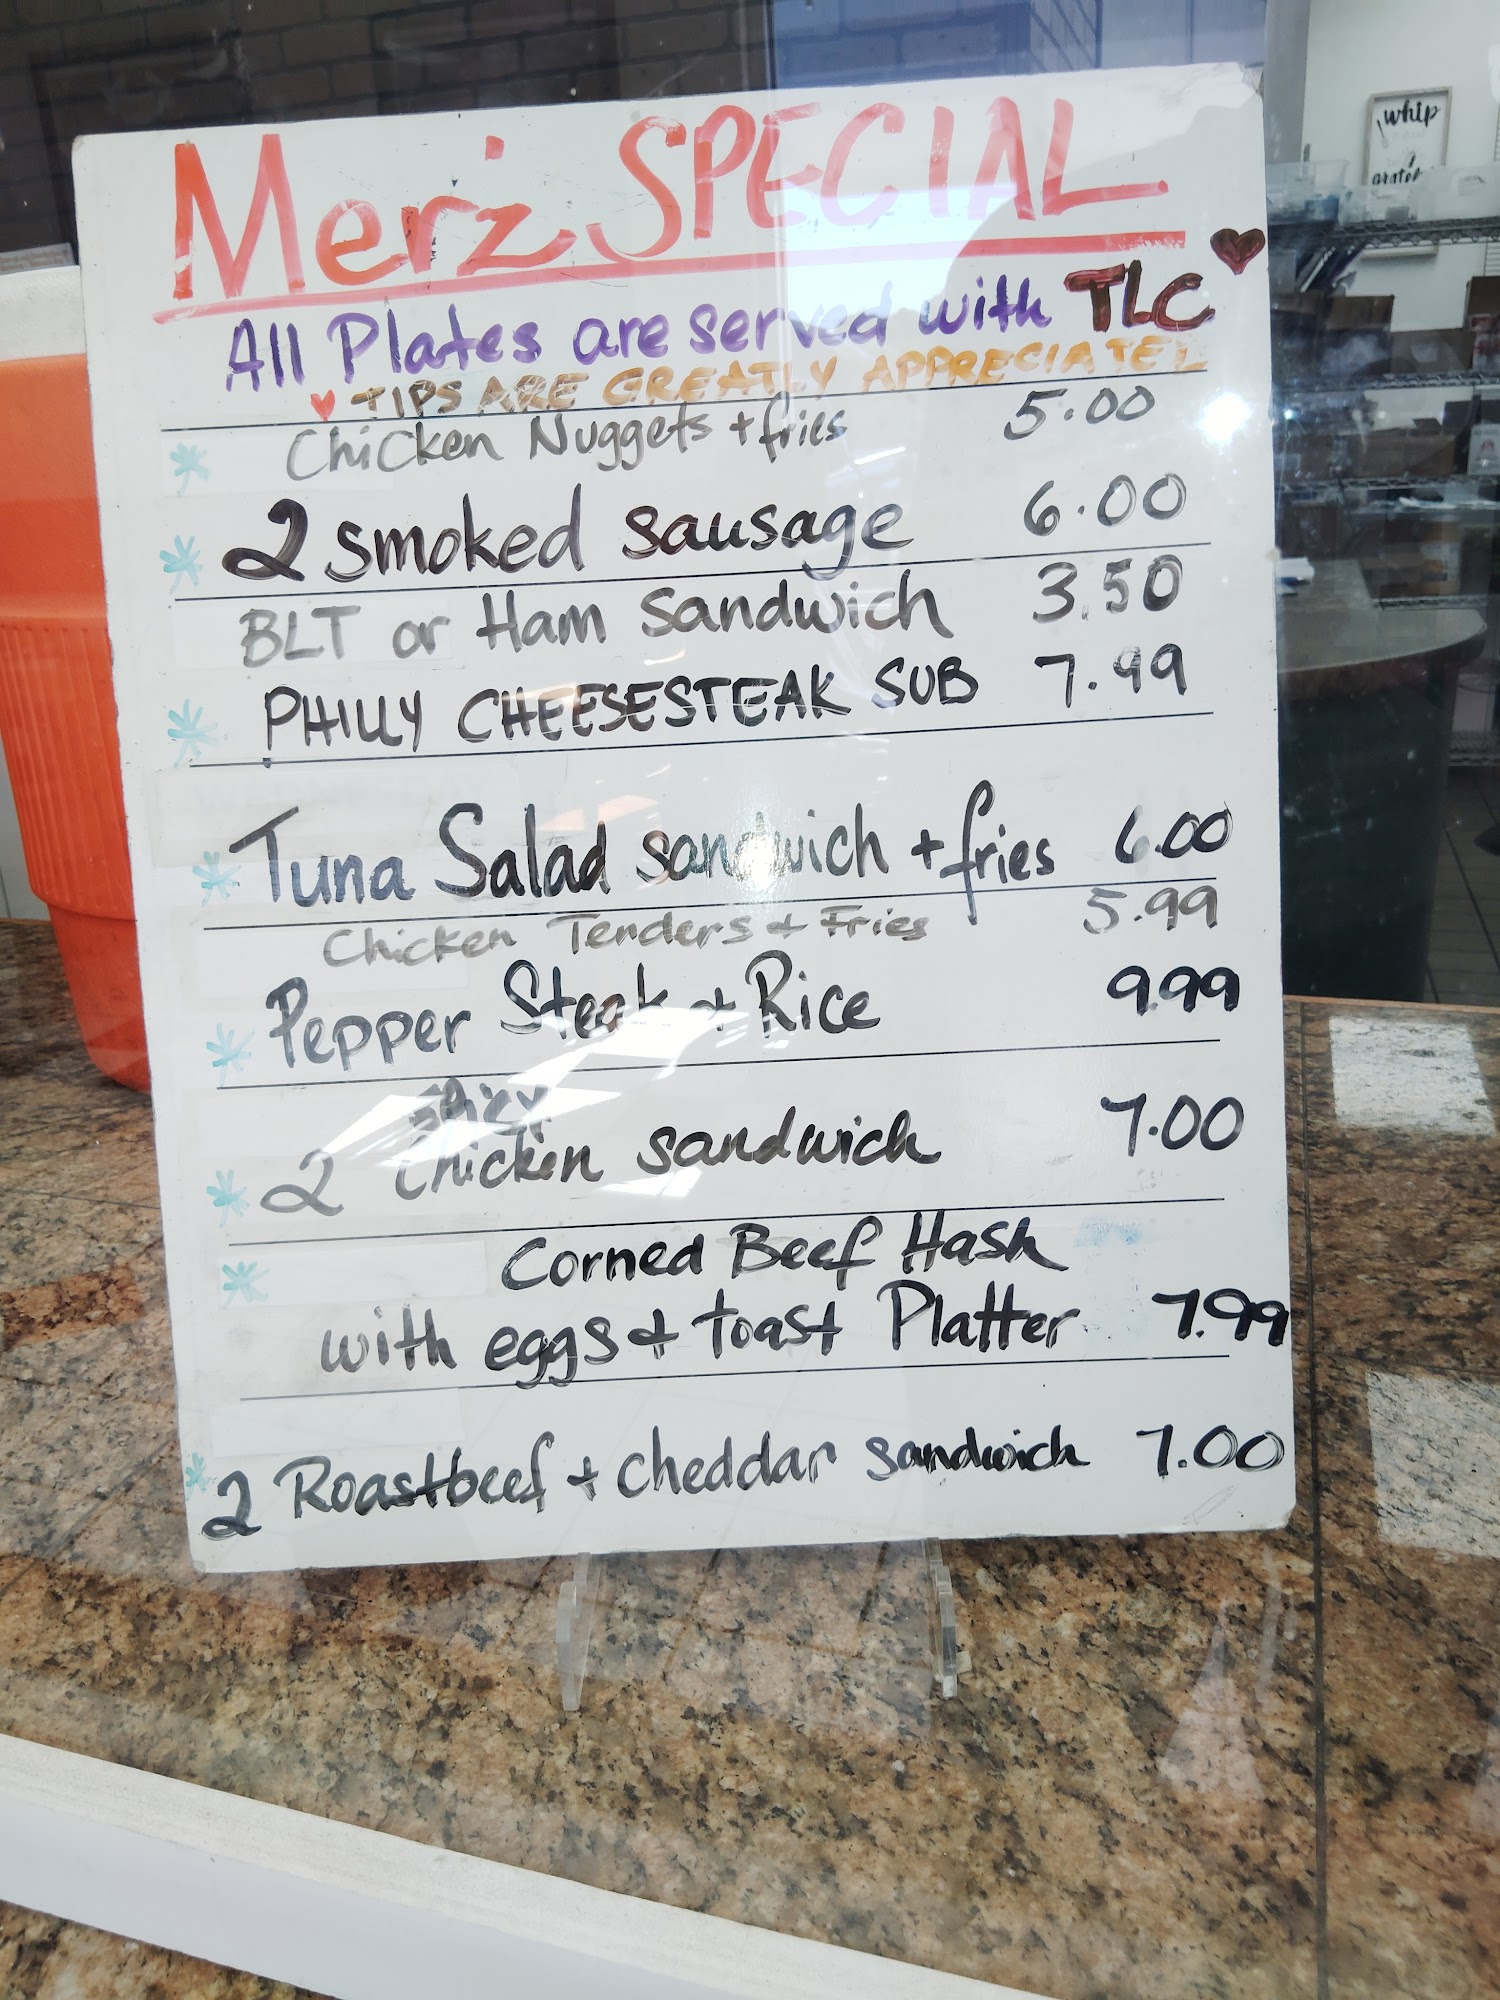 Merz SPECIAL
All Plates are served with TLC
TIPS ARE GREATLY APPRECIATED
Chicken Nuggets + fries 5.00
2 smoked sausage 6.00
BLT or Ham Sandwich 3.50
PHILLY CHEESESTEAK SUB 7.99
Tuna Salad sandwich + fries 6.00
Chicken Tenders + Fries 5.99
Pepper Steak + Rice 9.99
Spicy
2 Chicken sandwich 7.00
Corned Beef Hash
with eggs + toast Platter 7.99
2 Roastbeef + cheddar sandwich 7.00
whip